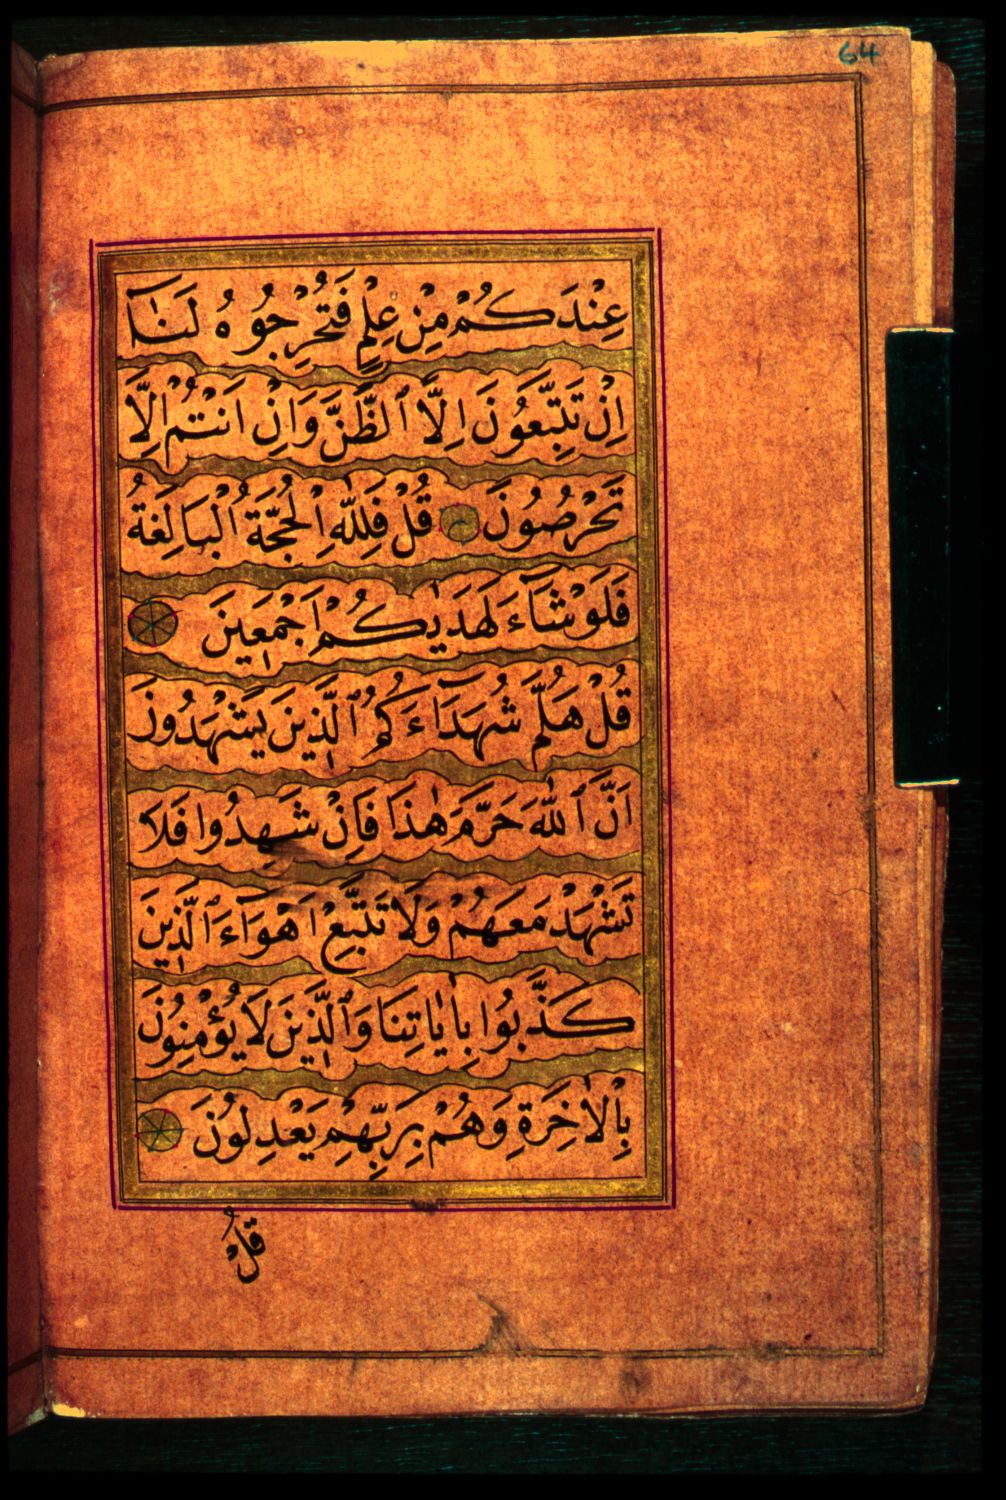 64
عِنْدَكُمْ مِنْ عِلْمٍ فَتُخْرِجُوهُ لَنَا
اِنْ تَتَّبِعُونَ اِلَّا ٱلظَّنَّ وَاِنْ اَنْتُمْ اِلَّا
تَخْرُصُونَ قُلْ فَلِلّٰهِ اْلحُجَّةُ اْلبَالِغَةُ
فَلَوْ شَآءَ لَهَدٰيكُمْ اَجْمَعِينَ
قُلْ هَلُمَّ شُهَدَآءَكُمُ ٱلَّذِينَ يَشْهَدُونَ
اَنَّ ٱللّٰهَ حَرَّمَ هٰذَا فَاِنْ شَهِدُوا فَلَا
تَشْهَدْ مَعَهُمْ وَلَا تَتَّبِعْ اَهْوَآءَ ٱلَّذِينَ
كَذَّبُوا بِاٰيَاتِنَا وَٱلَّذِينَ لَا يُؤْمِنُونَ
بِاْلاٰخِرَةِ وَهُمْ بِرَبِّهِمْ يَعْدِلُونَ
قُلْ